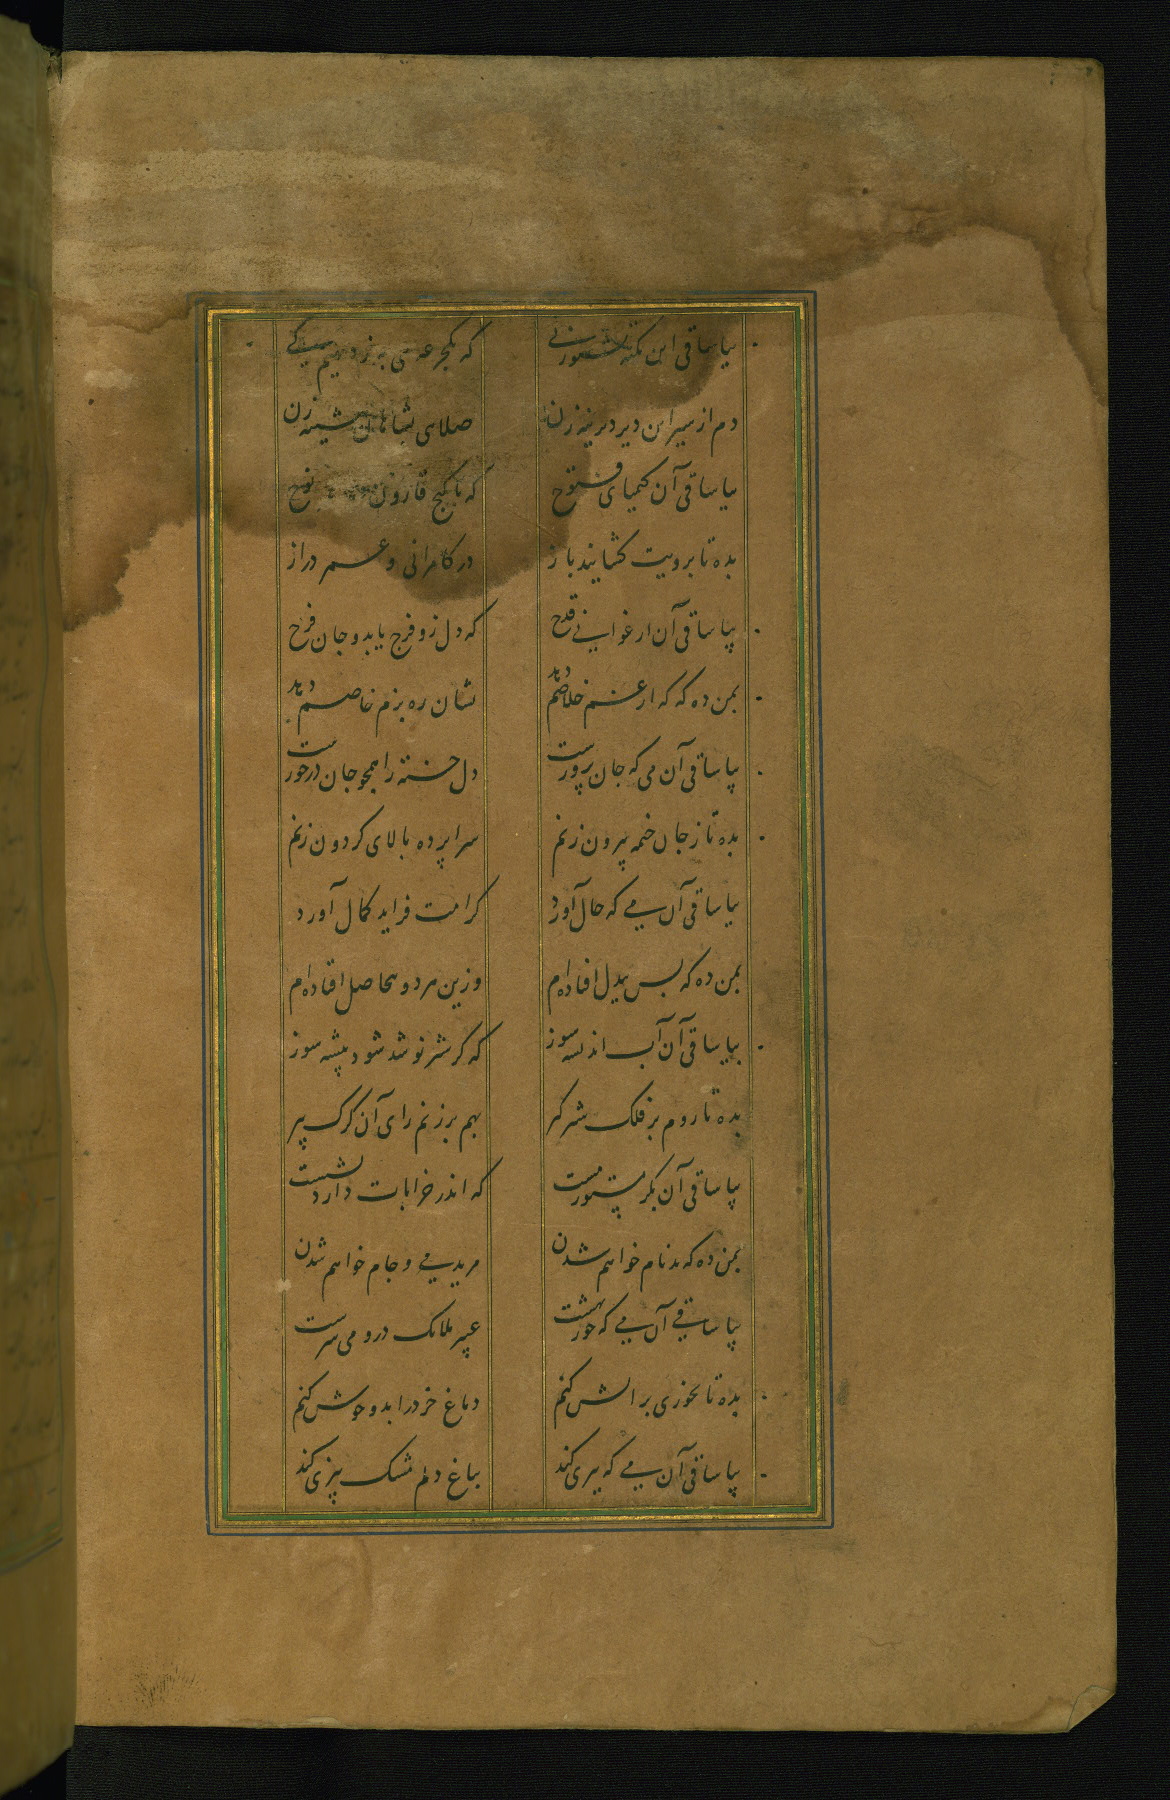 بیا ساقی این نکته بشنو ز نی که یکجرعه می به ز دیهیم کی
دم از سیر این دیر دیرینه زن صلای بشاهان پیشینه زن
بیا ساقی آن کیمیای فتوح که با گنج قارون نوح
بده تا برویت گشایند باز در کامرانی و عمر دراز
بیا ساقی آن ارغوانی قدح که دل زو فرح یابد و جان فرح
بمن ده که که از غم خلاصم دهد نشان ره بزم خاصم دهد
بیا ساقی آن می که جان پرورست دل خسته را همچو جان درخورست
بده تا ز جان خیمه بیرون زنم سراپرده بالای گردون زنم
بیا ساقی آن می که حال آورد کرامت فزاید کمال آورد
بمن ده که بس بیدل افتاده‌ام وزین هر دو بیحاصل افتاده‌ام
بیا ساقی آن آب اندیشه سوز که گر شیر نوشد شود بیشه سوز
بده تا روم بر فلک شیر گیر بهم بر زنم رای آن گرگ پیر
بیا ساقی آن بکر مستور مست که اندر خرابات دارد نشست
بمن ده که بدنام خواهم شدن مرید می و جام خواهم شدن
بیا ساقی آن می که حور بهشت عبیر ملایک درو می سرشت
بده تا بخوری بر آتش کنم دماغ خرد را بدو خوش کنم
بیا ساقی آن می که کند بباغ دلم مشک بیزی کند